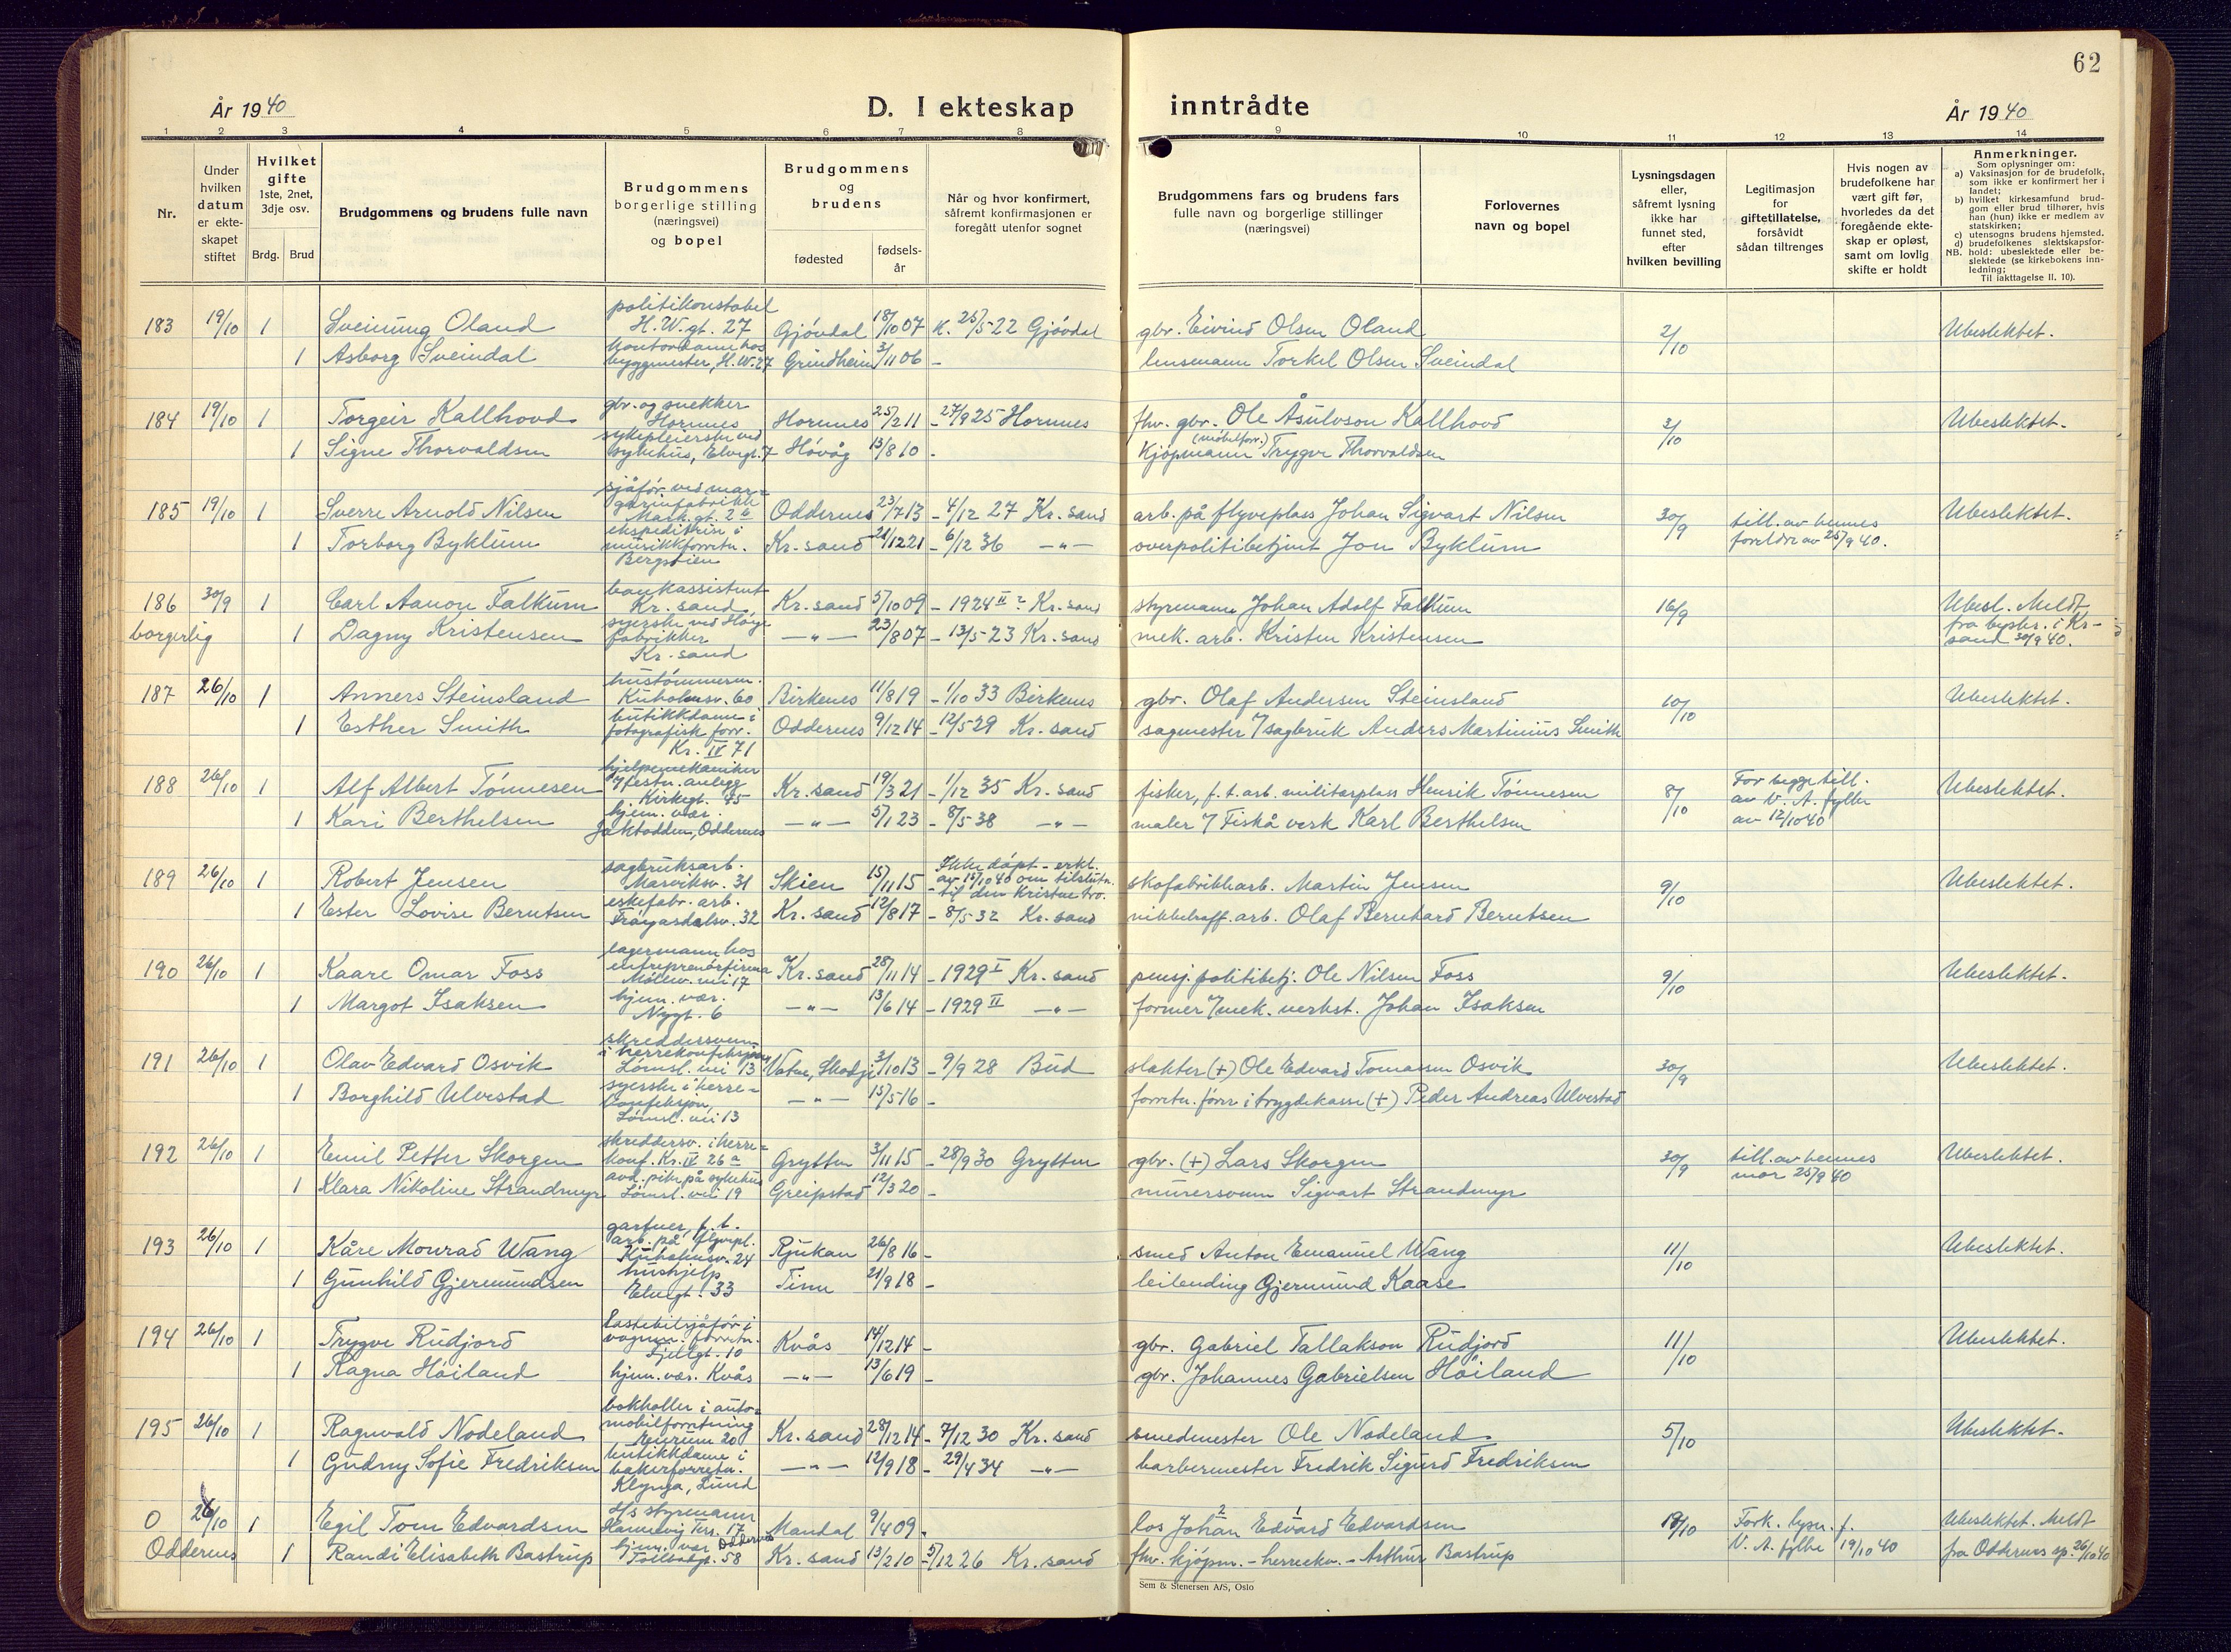 62
År 1940
D. I ekteskap
inntrådte
År 1940
1 2 3 4 5 6 7 8 9 10 11 12 13 14
Nr.
Under
hvilken
datum
er ekte-
skapet
stiftet
Hvilket
gifte
1ste, 2net,
3dje osv.
Brdg. Brud
Brudgommens og brudens fulle navn
Brudgommens
borgerlige stilling
(næringsvei)
og bopel
Brudgommens
og
brudens
fødested
fødsels-
år
Når og hvor konfirmert,
såfremt konfirmasjonen er
foregått utenfor sognet
Brudgommens fars og brudens fars
fulle navn og borgerlige stillinger
(næringsvei)
Forlovernes
navn og bopel
Lysningsdagen
eller,
såfremt lysning
ikke har
funnet sted,
efter
hvilken bevilling
Legitimasjon
for
giftetillatelse,
forsåvidt
sådan tiltrenges
Hvis nogen av
brudefolkene har
vært gift før,
hvorledes da det
foregående ekte-
skap er opløst,
samt om lovlig
skifte er holdt
Anmerkninger.
Som oplysninger om:
a) Vaksinasjon for de brudefolk,
som ikke er konfirmert her i
landet;
b) hvilket kirkesamfund brud-
gom eller brud tilhører, hvis
han (hun) ikke er medlem av
statskirken;
c) utensogns brudens hjemsted.
d) brudefolkenes slektskapsfor-
NB. hold: ubeslektede eller be-
slektede (se kirkebokens inn-
ledning;
Til iakttagelse II. 10).
politikonstabel
183 19/10 1 Sveinung Oland H.W.gt. 27 Gjövdal 18/10 07 K. 25/5-22 Gjövdal gbr. Eivind Olsen Oland 2/10 Ubeslektet.
kontordame hos
1 Asborg Sveindal byggmester, H.W. 27 Grindheim 3/11 06 - lensmann Torkel Olsen Sveindal
gbr. og snekker
184 19/10 1 Torgeir Kallhovd Hornnes Hornnes 25/2 11 - 27/9 25 Hornnes fhv. gbr. Ole Åsulvson Kallhovd 3/10 Ubeslektet.
sykepleierske ved (møbelforr.)
1 Signe Thorvaldsen sykehus, Elvegt. 7 Hövåg 13/8 10 - Kjöpmann Trygve Thorvaldsen
sjåför ved mar-
garinfabrikk
185 19/10 1 Sverre Arnold Nilsen Mark.gt. 2 b Oddernes 23/7 13 - 4/12 27 Kr.sand arb. på flyveplass Johan Sigvart Nilsen 30/9 till. av hennes Ubeslektet.
ekspeditrise i
1 Torborg Byklum musikkforretn. Kr.sand 21/12 21 - 6/12 36 -"- overpolitibetjent Jon Byklum foreldre av 25/9 40.
Bergstien
bankassistent
186 30/9 1 Carl Aanon Falkum Kr.sand Kr.sand 5/10 09 - 1924 II ? Kr.sand styrmann Johan Adolf Falkum 16/9 Ubesl. Meldt
syerske ved Höye
borgerlig 1 Dagny Kristensen fabrikker -"- 23/8 07 - 13/5-23 Kr.sand mek. arb. Kristen Kristensen fra byskr. i Kr-
Kr.sand sand 30/9 40.
hustömmerm.
187 26/10 1 Anners Steinsland Kuholmsv. 60 Birkenes 11/8 19 - 1/10 33 Birkenes gbr. Olaf Andersen Steinsland 10/10 Ubeslektet.
butikkdame i
1 Esther Smith fotografisk forr. Oddernes 9/12 14 - 12/5-29 Kr.sand sagmester 7 sagbruk Anders Martinius Smith
Kr. IV 71
hjelpemekaniker
7 festn. anlegg
188 26/10 1 Alf Albert Tönnesen Kirkegt. 45 Kr.sand 19/3 21 - 1/12 35 Kr.sand fisker, f.t. arb. militærplass Henrik Tönnesen 8/10 For begge till. Ubeslektet.
av V. A. fylke
hjem. vær.
1 Kari Berthelsen Jaktodden, Oddernes -"- 5/1 23 - 8/5-38 -"- maler 7 Fiskå verk Karl Berthelsen av 12/10 40
sagbruksarb. Ikke döpt - erkl.
189 26/10 1 Robert Jensen Marviksv. 31 Skien 15/11 15 av 15/10 40 om tilslutn. skofabrikkarb. Martin Jensen 9/10 Ubeslektet.
- til den kristne tro.
eskefabr. arb.
1 Ester Lovise Berntsen Fröyasdalsv. 32 Kr.sand 12/8 17 - 8/5 32 Kr.sand nikkelraff. arb. Olaf Bernhard Berntsen
lagermann hos
entreprenörfirma
190 26/10 1 Kaare Omar Foss Möllev. vei 17 Kr.sand 28/11 14 - 1929 I Kr.sand pensj. politibetj. Ole Nilsen Foss 9/10 Ubeslektet.
hjem. vær.
1 Margot Isaksen Nygt. 6 -"- 13/6 14 - 1929 II -"- former 7 mek. verkst. Johan Isaksen
skreddersvenn
i herrekonfeksjon
191 26/10 1 Olav Edvard Osvik Lömsl. vei 13 Vatne, Skodje 3/10 13 - 9/9 28 Bud slakter (+) Ole Edvard Tomassen Osvik 30/9 Ubeslektet.
syerske i herre-
1 Borghild Ulvestad konfeksjon, -"- 15/5-16 - forretn. förer i trygdekasse (+) Peder Andreas Ulvestad
Lömsl. vei 13
skreddersv. i herre-
192 26/10 1 Emil Petter Skorgen konf. Kr. IV 26 a Grytten 3/11 15 - 28/9 30 Grytten gbr. (+) Lars Skorgen 30/9 till. av hennes Ubeslektet.
avd. pike på sykehus
1 Klara Nikoline Strandmyr Lömsl. vei 19 Greipstad 12/3 20 - murersvenn Sigvart Strandmyr mor 25/9 40
gartner, f.t.
arb. på flyvepl.
193 26/10 1 Kåre Monrad Wang Kuholmsv. 24 Rjukan 26/8 16 - smed Anton Emanuel Wang 11/10 Ubeslektet.
hushjelp
1 Gunhild Gjermundsen Elvegt. 33 Tinn 21/9 18 - leilending Gjermund Kaase
lastebilsjåför i
vognm. forretn.
194 26/10 1 Trygve Rudjord Fjellgt. 10 Kvås 14/12 14 - gbr. Gabriel Tallakson Rudjord 11/10 Ubeslektet.
1 Ragna Höiland hjem. vær. Kvås -"- 13/6 19 - gbr. Johannes Gabrielsen Höiland
bokholder i auto-
mobilforretning
195 26/10 1 Ragnvald Nodeland 20 Kr.sand 28/12 14 - 7/12 30 Kr.sand smedmester Ole Nodeland 5/10 Ubeslektet.
butikkdame i
1 Gudny Sofie Fredriksen bakerforretn. -"- 12/9 18 - 29/4 34 -"- barbermester Fredrik Sigurd Fredriksen
Klynga, Lund
d/s styrmann
O 26/10 1 Egil Tom Edvardsen Hannevig Ters. 17 Mandal 9/4 09 - los Johan 2 Edvard 1 Edvardsen 18/10 Fork. lysn. f. Ubeslektet. Meldt
Oddernes
Oddernes 1 Randi Elisabeth Bastrup hjem. vær. Tollbodgt. 58 Kr.sand 13/2 10 - 5/12 26 Kr.sand fhv. kjöpm. - herreekv. - Arthur Bastrup V. A. fylke 19/10 40 fra Oddernes sp. 26/10 40
Sem & Stenersen A/S, Oslo